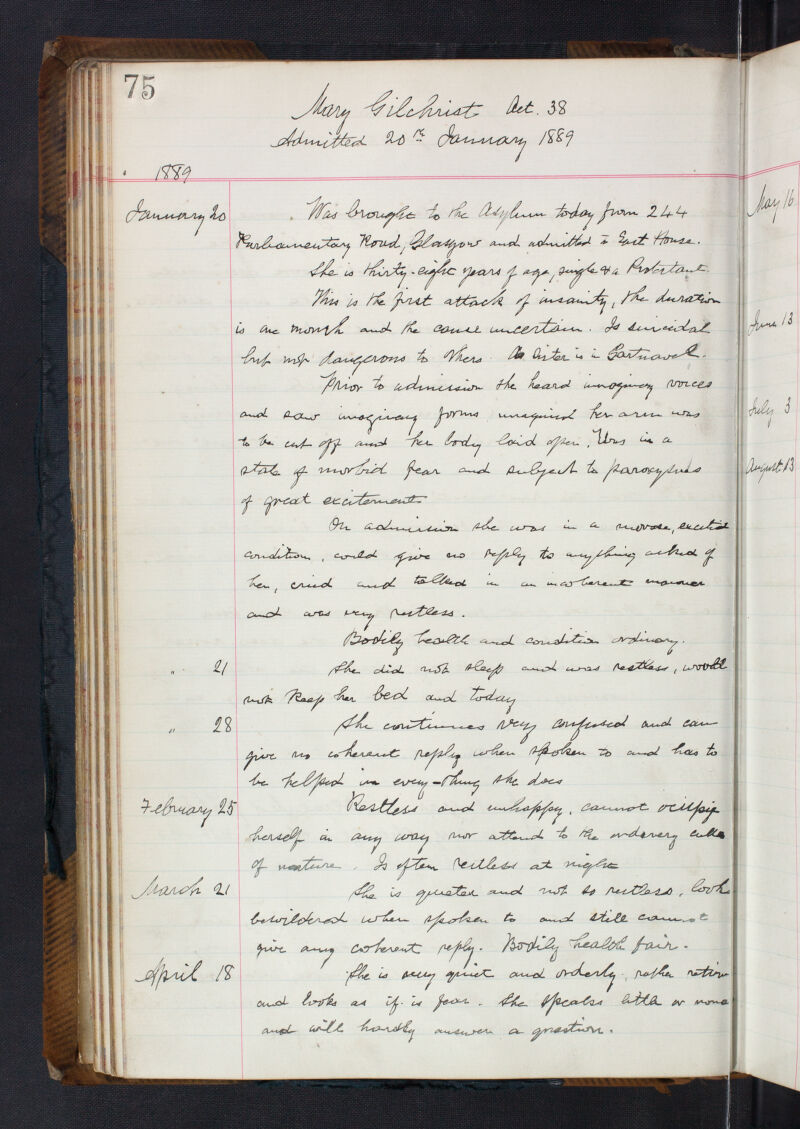 75
Mary Gilchrist Aet. 38
Admitted 20th January 1889
1889
January 20 Was brought to the Asylum today from 244
Parliamentary Road, Glasgow and admitted to East House.
She is thirty-eight years of age, single & a Protestant.
This is the first attack of insanity, the duration
is one month and the cause uncertain. Is suicidal
but not dangerous to others. A sister is in Gartnavel.
Prior to admission she heard imaginary voices
and saw imaginary forms imagined her arm was
to be cut off and her body laid open. Was in a
state of morbid fear and subject to paroxysms
of great excitement
On admission she was in a morose, excited
condition, could give no reply to anything asked of
her, cried and talked in an incoherent manner
and was very restless.
Bodily health and condition ordinary.
" 21 She did not sleep and was restless, would
not keep her bed and today
" 28 She continues very confused and can
give no coherent reply when spoken to and has to
be helped in every-thing she does
February 25 Restless and unhappy, cannot occupy
herself in any way nor attend to the ordinary calls
of nature. Is often restless at night
March 21 She is quieter and not so restless, looks
bewildered when spoken to and still cannot
give any coherent reply. Bodily health fair.
April 18 She is very quiet and orderly, rather
and looks as if in fear. She speaks little or none
and will hardly answer a question.
May 16
June 13
July 3
August 13